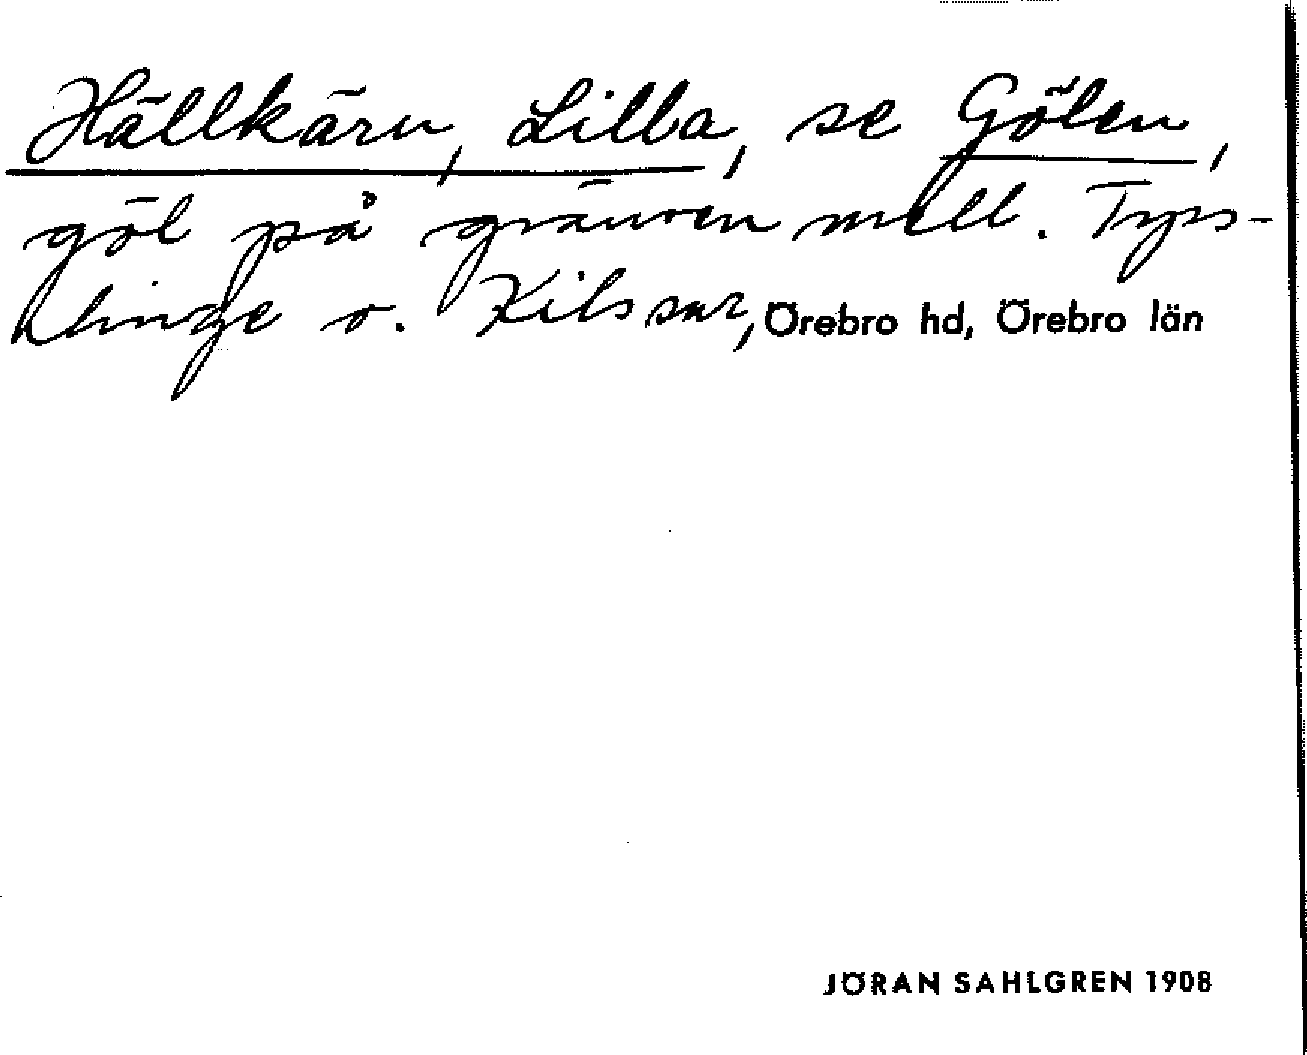 Hällkärn, Lilla, se Gölen,
göl på gränsen mell. Tyss-
linge o. Kils snr, Örebro hd, Örebro län
JÖRAN SAHLGREN 1908